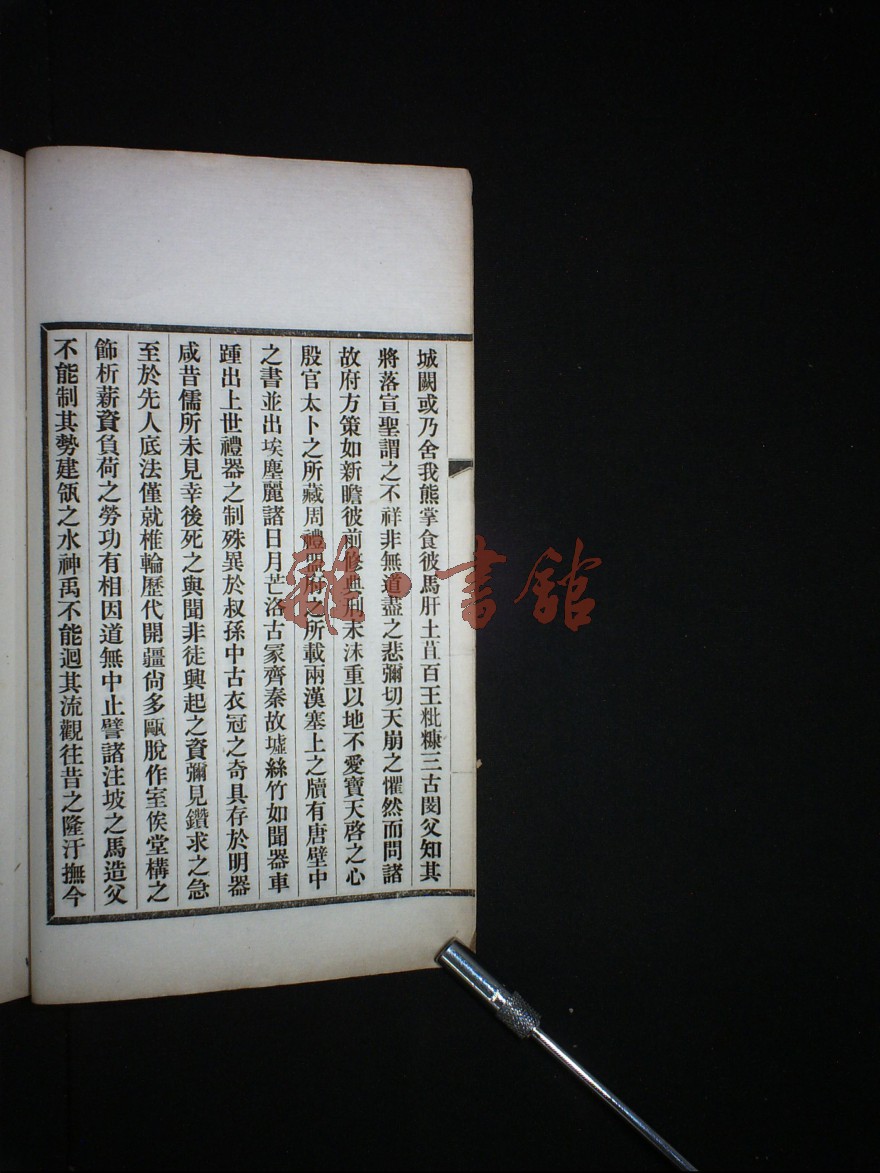 城闕或乃舍我熊掌食彼馬肝土苴百王粃糠三古閔父知其
將落宣聖謂之不祥非無道盡之悲彌切天崩之懼然而問諸
故府方策如新瞻彼前修典刑未沬重以地不愛寶天啓之心
殷官太卜之所藏周禮盟府之所載兩漢塞上之牘有唐壁中
之書並出埃塵麗諸日月芒洛古冢齊秦故墟絲竹如聞器車
踵出上世禮器之制殊異於叔孫中古衣冠之奇具存於明器
咸昔儒所未見幸後死之與聞非徒興起之資彌見鑽求之急
至於先人底法僅就椎輪歷代開疆尙多甌脫作室俟堂構之
飾析薪資負荷之勞功有相因道無中止譬諸注坡之馬造父
不能制其勢建瓴之水神禹不能迴其流觀往昔之隆汙撫今
雜·書館